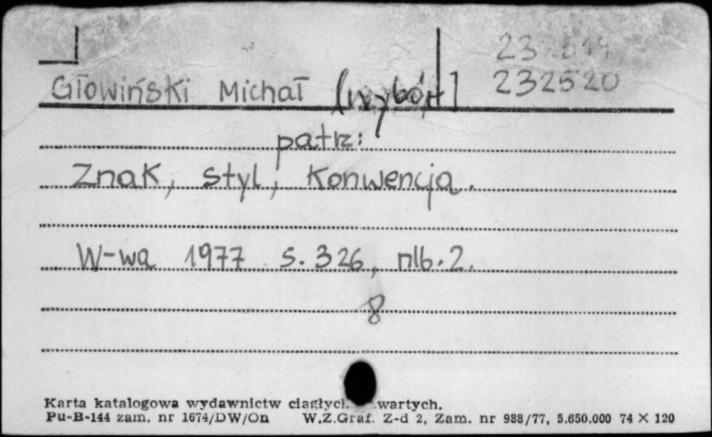 232519
Głowiński Michał (wybór] 232520
patrz:
Znak, styl, konwencja.
W-wa 1977 s. 326, nlb. 2.
8
Karta katalogowa wydawnictw ciągłych wartych.
Pu-B-144 zam. nr 1674/DW/On W.Z.Graf. Z-d 2, Zam. nr 988/77, 5.650.000 74 X 120